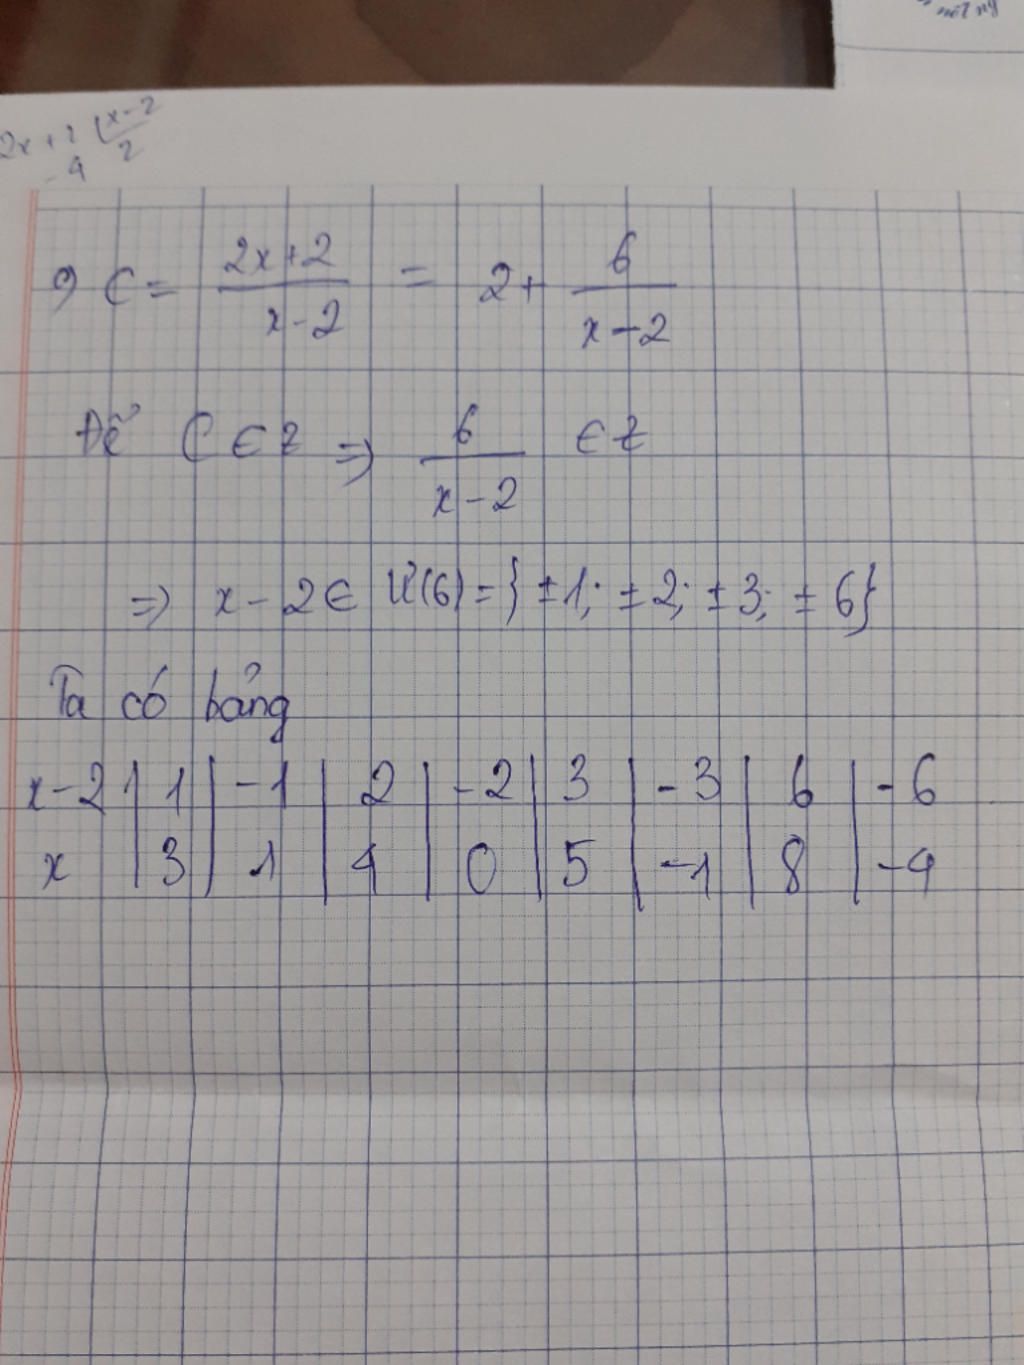 2x+2 x-2
-4 2
9 C = 2x+2 / x-2 = 2 + 6 / x-2
Để C ∈ Z => 6 / x-2 ∈ Z
=> x - 2 ∈ Ư(6) = { ±1; ±2; ±3; ±6}
Ta có bảng
x-2 | 1 | -1 | 2 | -2 | 3 | -3 | 6 | -6
x | 3 | 1 | 4 | 0 | 5 | -1 | 8 | -4